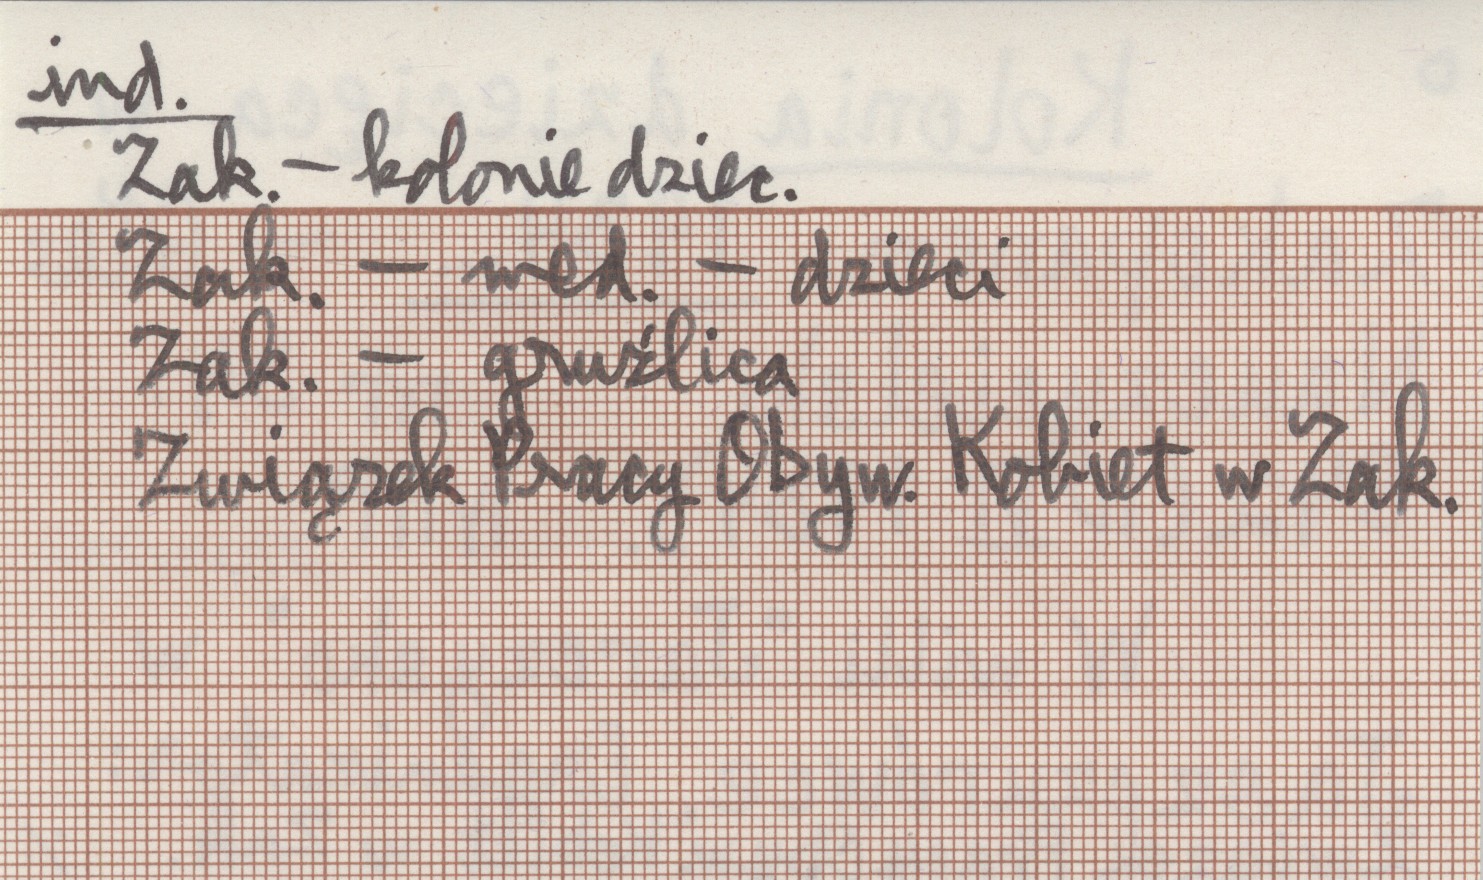 ind.
Zak. – kolonie dziec.
Zak. – med. – dzieci
Zak. – gruźlica
Związek Pracy Obyw. Kobiet w Zak.